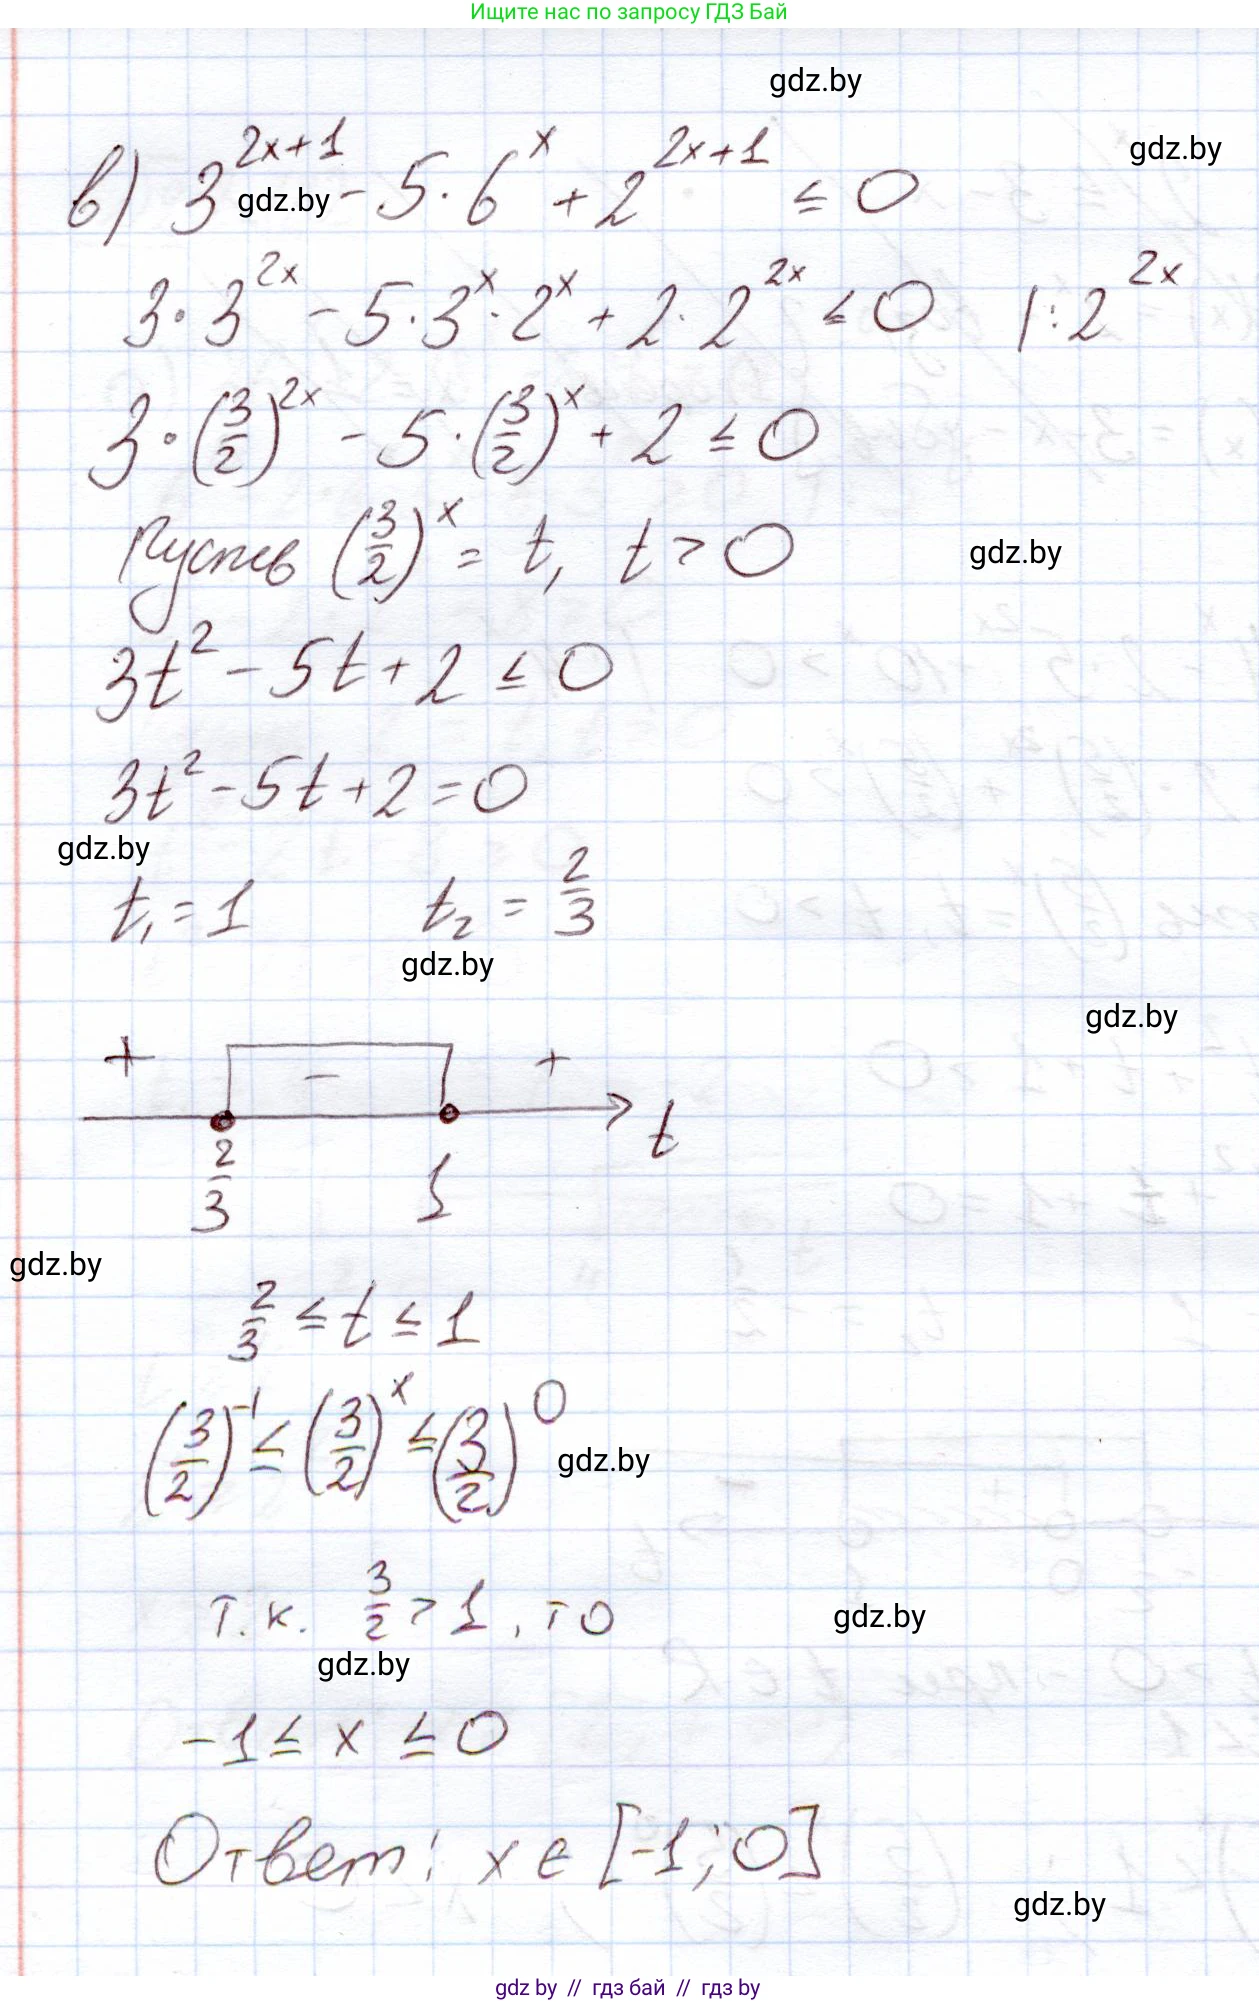 Ищите нас по запросу ГДЗ Бай
gdz.by
gdz.by
в) 3^{2x+1} - 5·6^x + 2^{2x+1} ≤ 0
gdz.by
3·3^{2x} - 5·3^x·2^x + 2·2^{2x} ≤ 0 |:2^{2x}
3·(3/2)^{2x} - 5·(3/2)^x + 2 ≤ 0
Пусть (3/2)^x = t, t > 0
gdz.by
3t² - 5t + 2 ≤ 0
3t² - 5t + 2 = 0
gdz.by
t₁ = 1 t₂ = 2/3
gdz.by
gdz.by
+ - +
t
2/3 1
gdz.by
2/3 ≤ t ≤ 1
(3/2)^{-1} ≤ (3/2)^x ≤ (3/2)^0
gdz.by
т.к. 3/2 > 1, то
gdz.by
gdz.by
-1 ≤ x ≤ 0
Ответ: x ∈ [-1; 0]
gdz.by
gdz by // гдз бай // гдз by